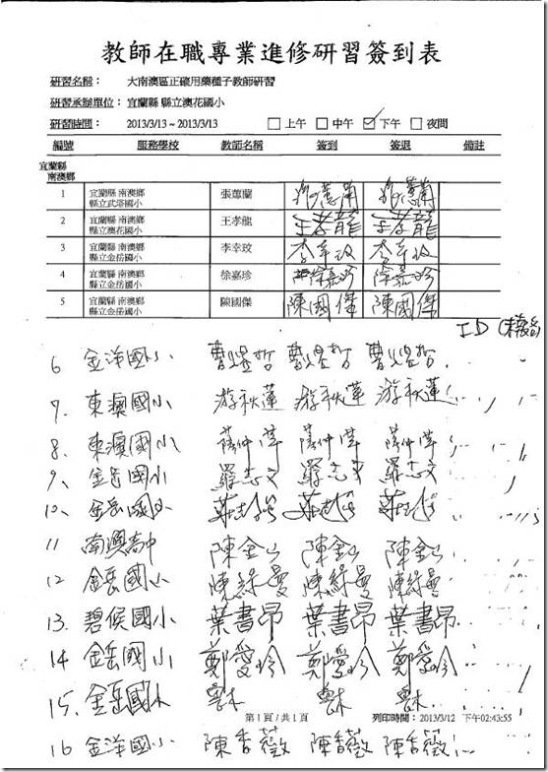 教師在職專業進修研習簽到表
研習名稱： 大南澳區正確用藥種子教師研習
研習承辦單位： 宜蘭縣 縣立澳花國小
研習時間： 2013/3/13 ~ 2013/3/13 □上午 □中午 ☑下午 □夜間
編號 服務學校 教師名稱 簽到 簽退 備註
宜蘭縣
南澳鄉
1 宜蘭縣 南澳鄉 縣立武塔國小 張蕙蘭
2 宜蘭縣 南澳鄉 縣立澳花國小 王孝龍 王孝龍 王孝龍
3 宜蘭縣 南澳鄉 縣立金岳國小 李幸玫 李幸玫 李幸玫
4 宜蘭縣 南澳鄉 縣立金岳國小 徐嘉珍 徐嘉珍 徐嘉珍
5 宜蘭縣 南澳鄉 縣立金岳國小 陳國傑 陳國傑 陳國傑
ID
6 金洋國小 曹煜哲 曹煜哲 曹煜哲
7. 東澳國小 游秋蓮 游秋蓮 游秋蓮
8. 東澳國小 仲萍 仲萍 仲萍
9、 金岳國小 羅志文 羅志文 羅志文
10、 金岳國小
11 南澳高中 陳金 陳金 陳金
12 金岳國小 陳綺曼 陳綺曼 陳綺曼
13. 碧候國小 葉書昂 葉書昂 葉書昂
14 金岳國小 鄭愛玲 鄭愛玲 鄭愛玲
15. 金岳國小
第1頁 / 共1頁 列印時間： 2013/3/12 下午02:43:55
16 金洋國小 陳香薇 陳香薇 陳香薇